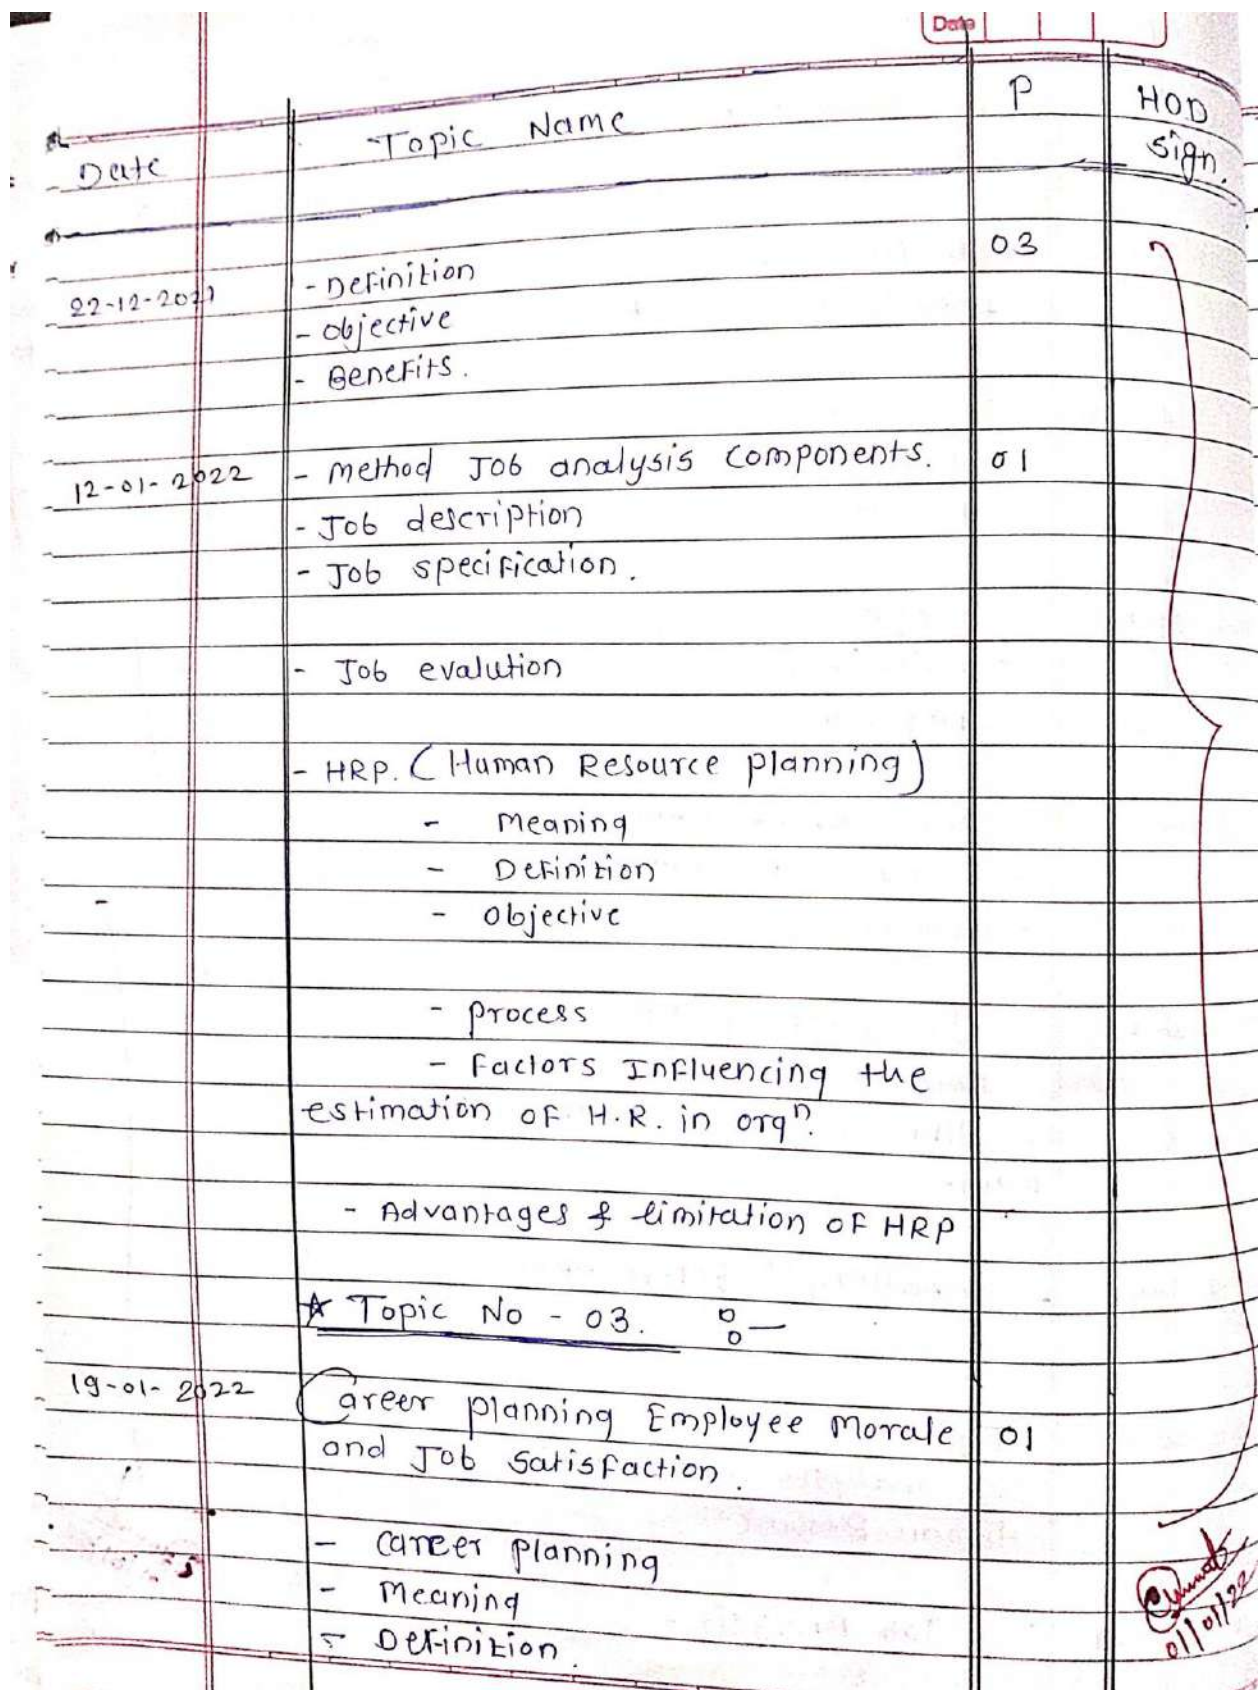 Date
P
HOD
Date
Topic Name
sign.
03
22-12-2021
- Definition
- objective
- Benefits.
12-01-2022
- Method Job analysis components.
01
- Job description
- Job specification.
- Job evalution
- HRP. (Human Resource planning)
- Meaning
- Definition
- objective
- process
- Factors Influencing the
estimation of H.R. in orgn.
- Advantages & limitation of HRP
☆ Topic No - 03. :-
19-01-2022
Career planning Employee Morale
01
and Job Satisfaction.
- career planning
- Meaning
- Definition.
01/01/22